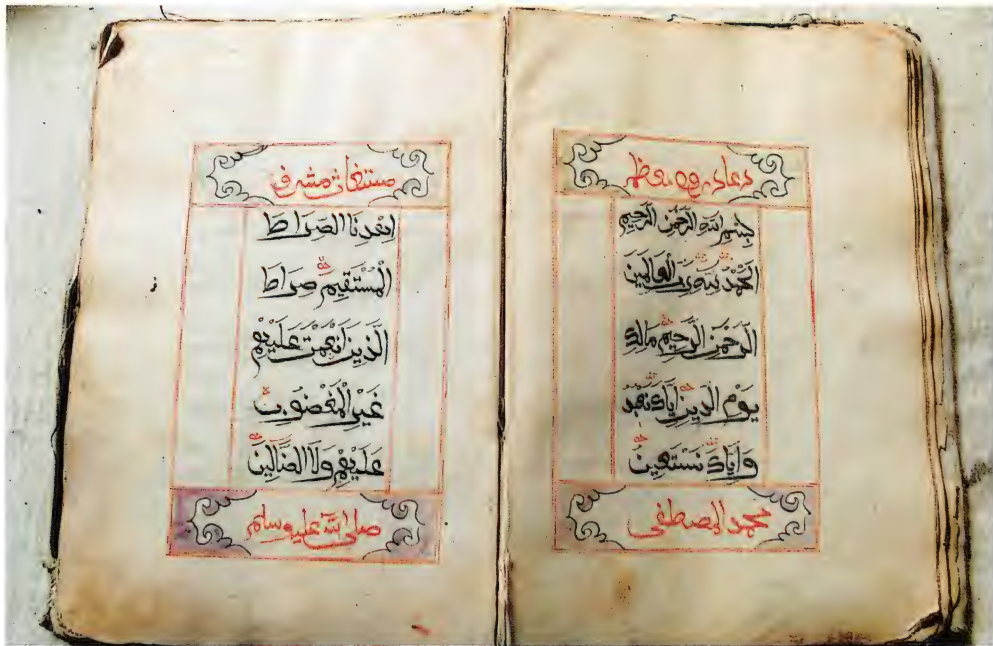 دعاء درود معظم
بسم الله الرحمن الرحيم
الحمد لله رب العالمين
الرحمن الرحيم مالك
يوم الدين اياك نعبد
واياك نستعين
محمد المصطفى
مستغاث مشرف
اهدنا الصراط
المستقيم صراط
الذين انعمت عليهم
غير المغضوب
عليهم ولا الضالين
صلى الله عليه وسلم